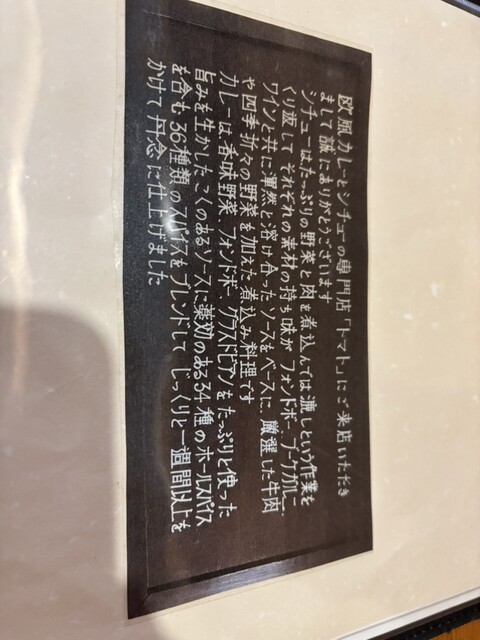 欧風カレーとシチューの専門店「トマト」にご来店いただき
まして誠にありがとうございます
シチューはたっぷりの野菜と肉を煮込んでは漉しという作業を
くり返して それぞれの素材の持ち味が フォンドボー、ブーケガルニー、
ワインと共に渾然と溶け合ったソースをベースに、厳選した牛肉
や四季折々の野菜を加えた煮込み料理です
カレーは、香味野菜、フォンドボー、グラスドビアンをたっぷりと使った
旨みを生かしたこくのあるソースに薬効のある34種のホールスパイス
を含む36種類のスパイスをブレンドして じっくりと一週間以上を
かけて丹念に仕上げました